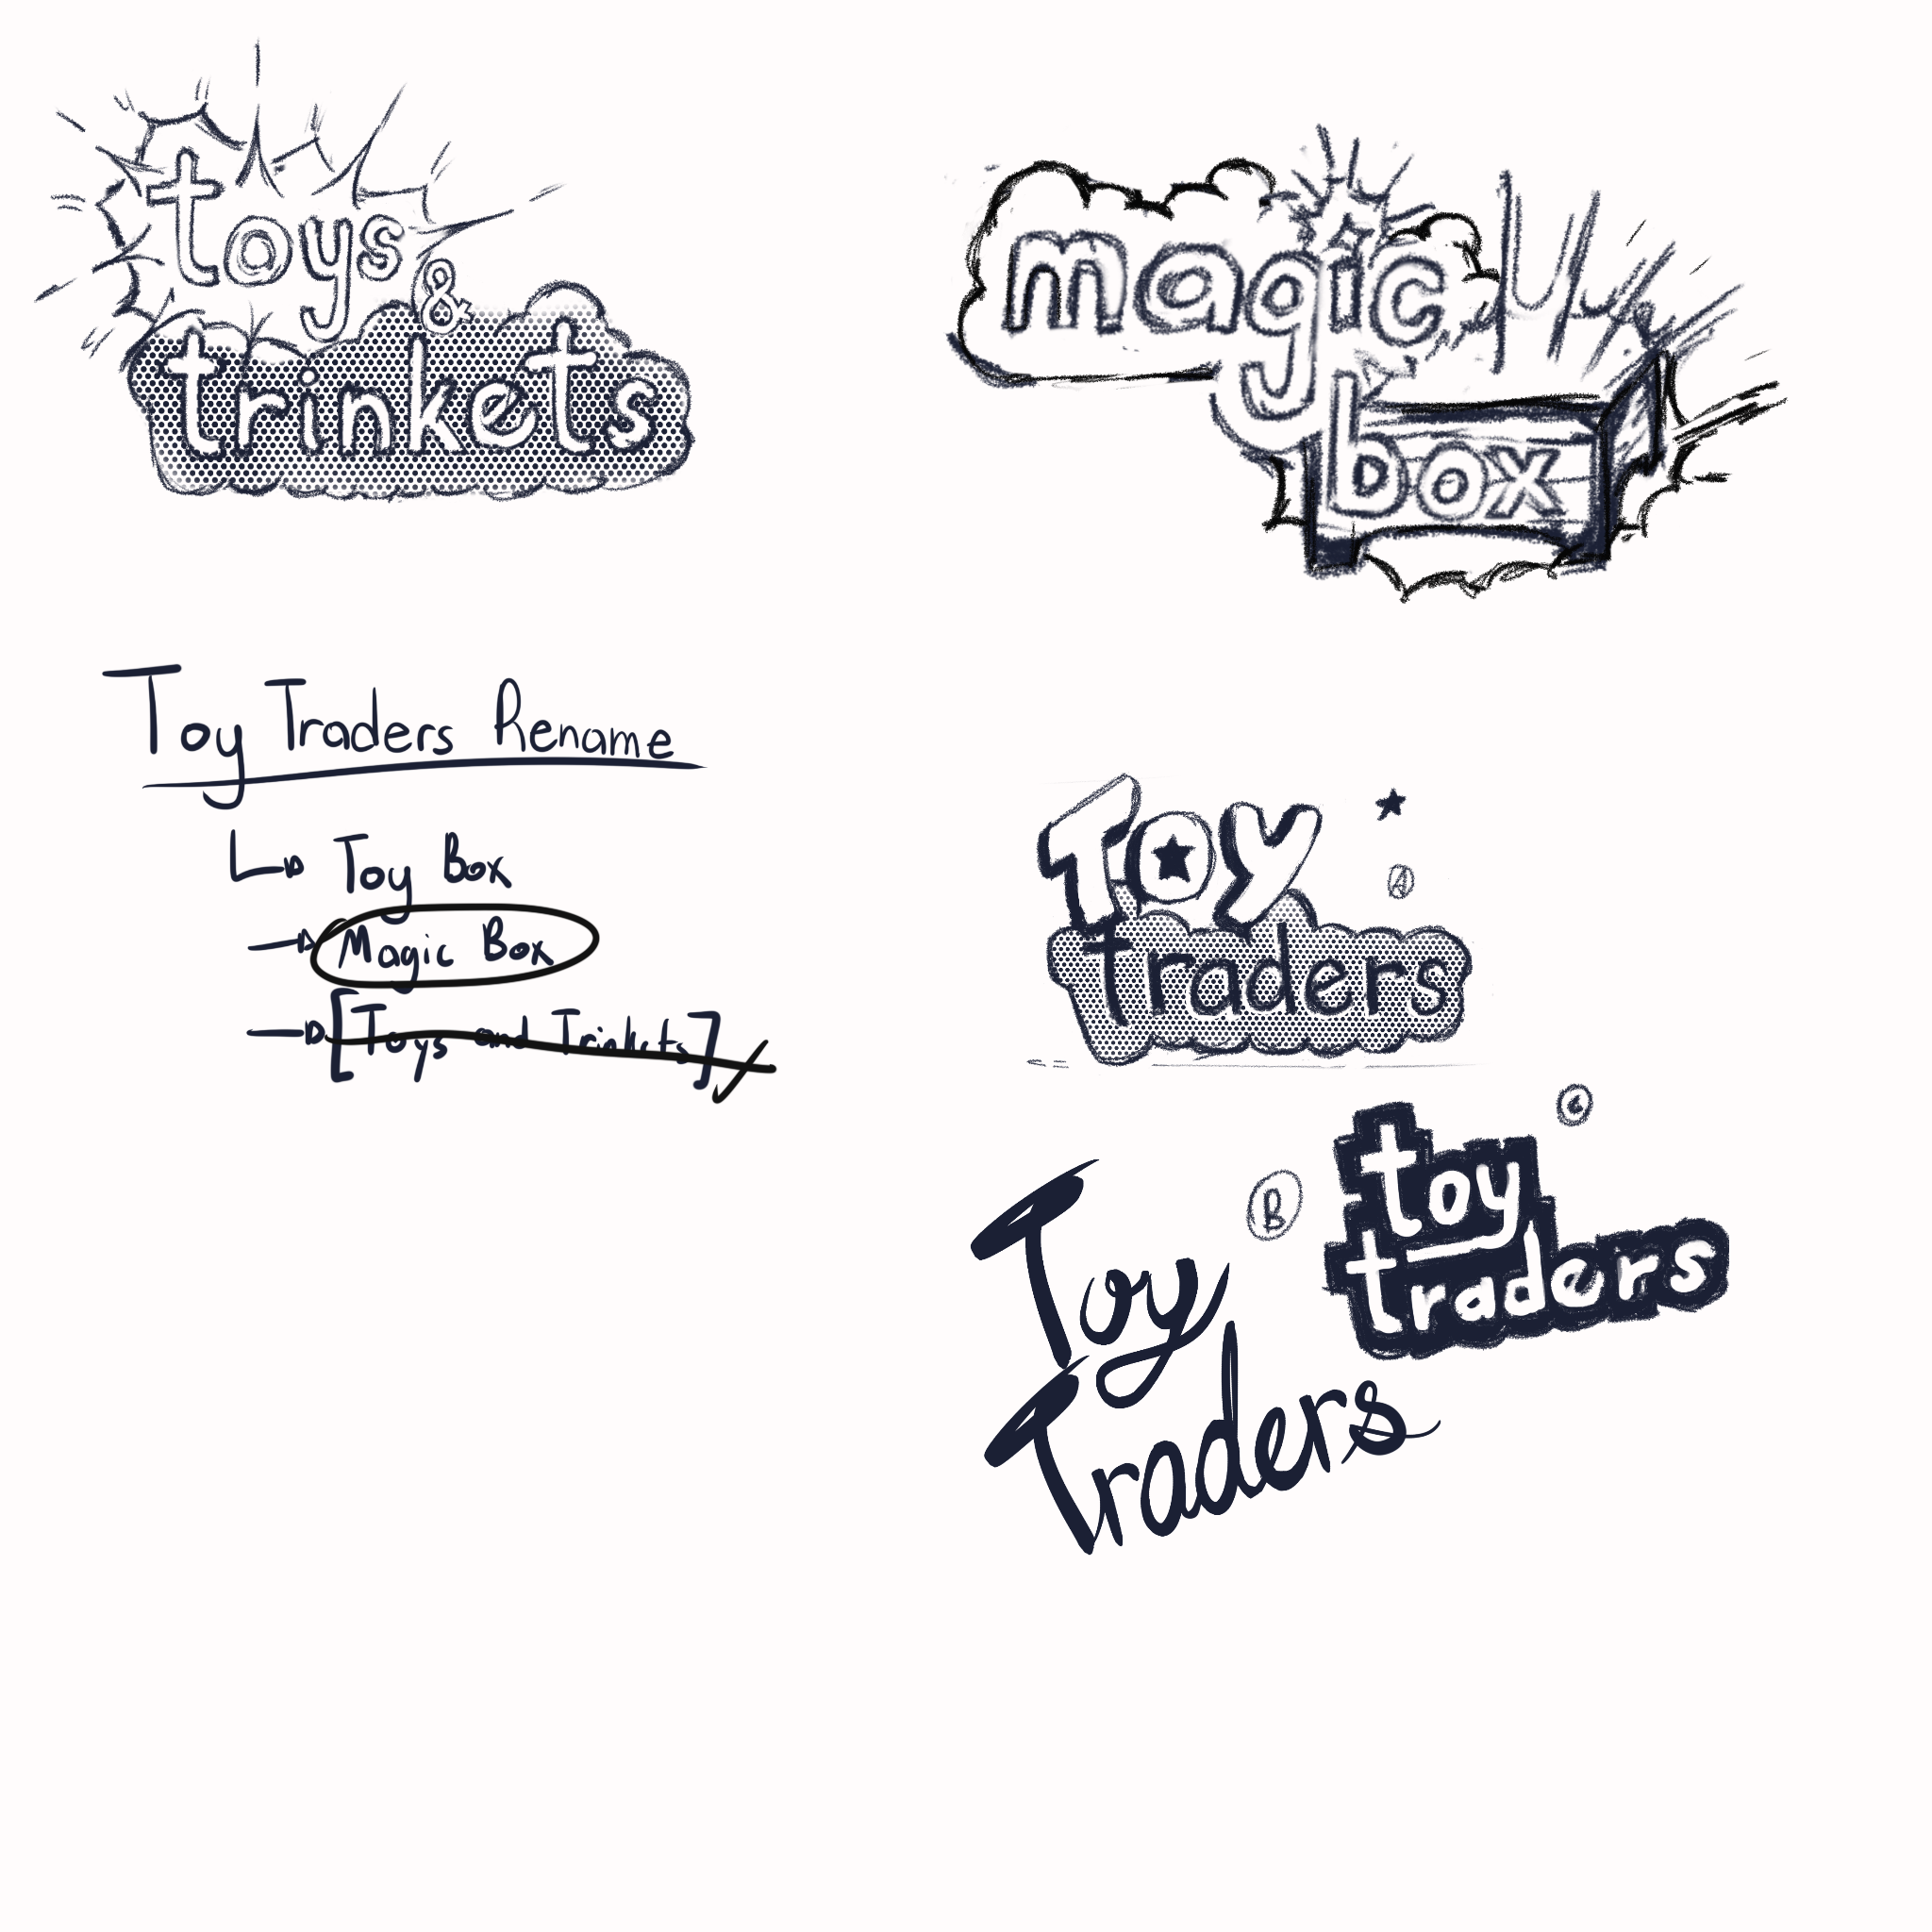 toys
&
trinkets
magic
box
Toy Traders Rename
Toy Box
Magic Box
[Toys and Trinkets]
TOY
A
traders
B
Toy
Traders
C
toy
traders